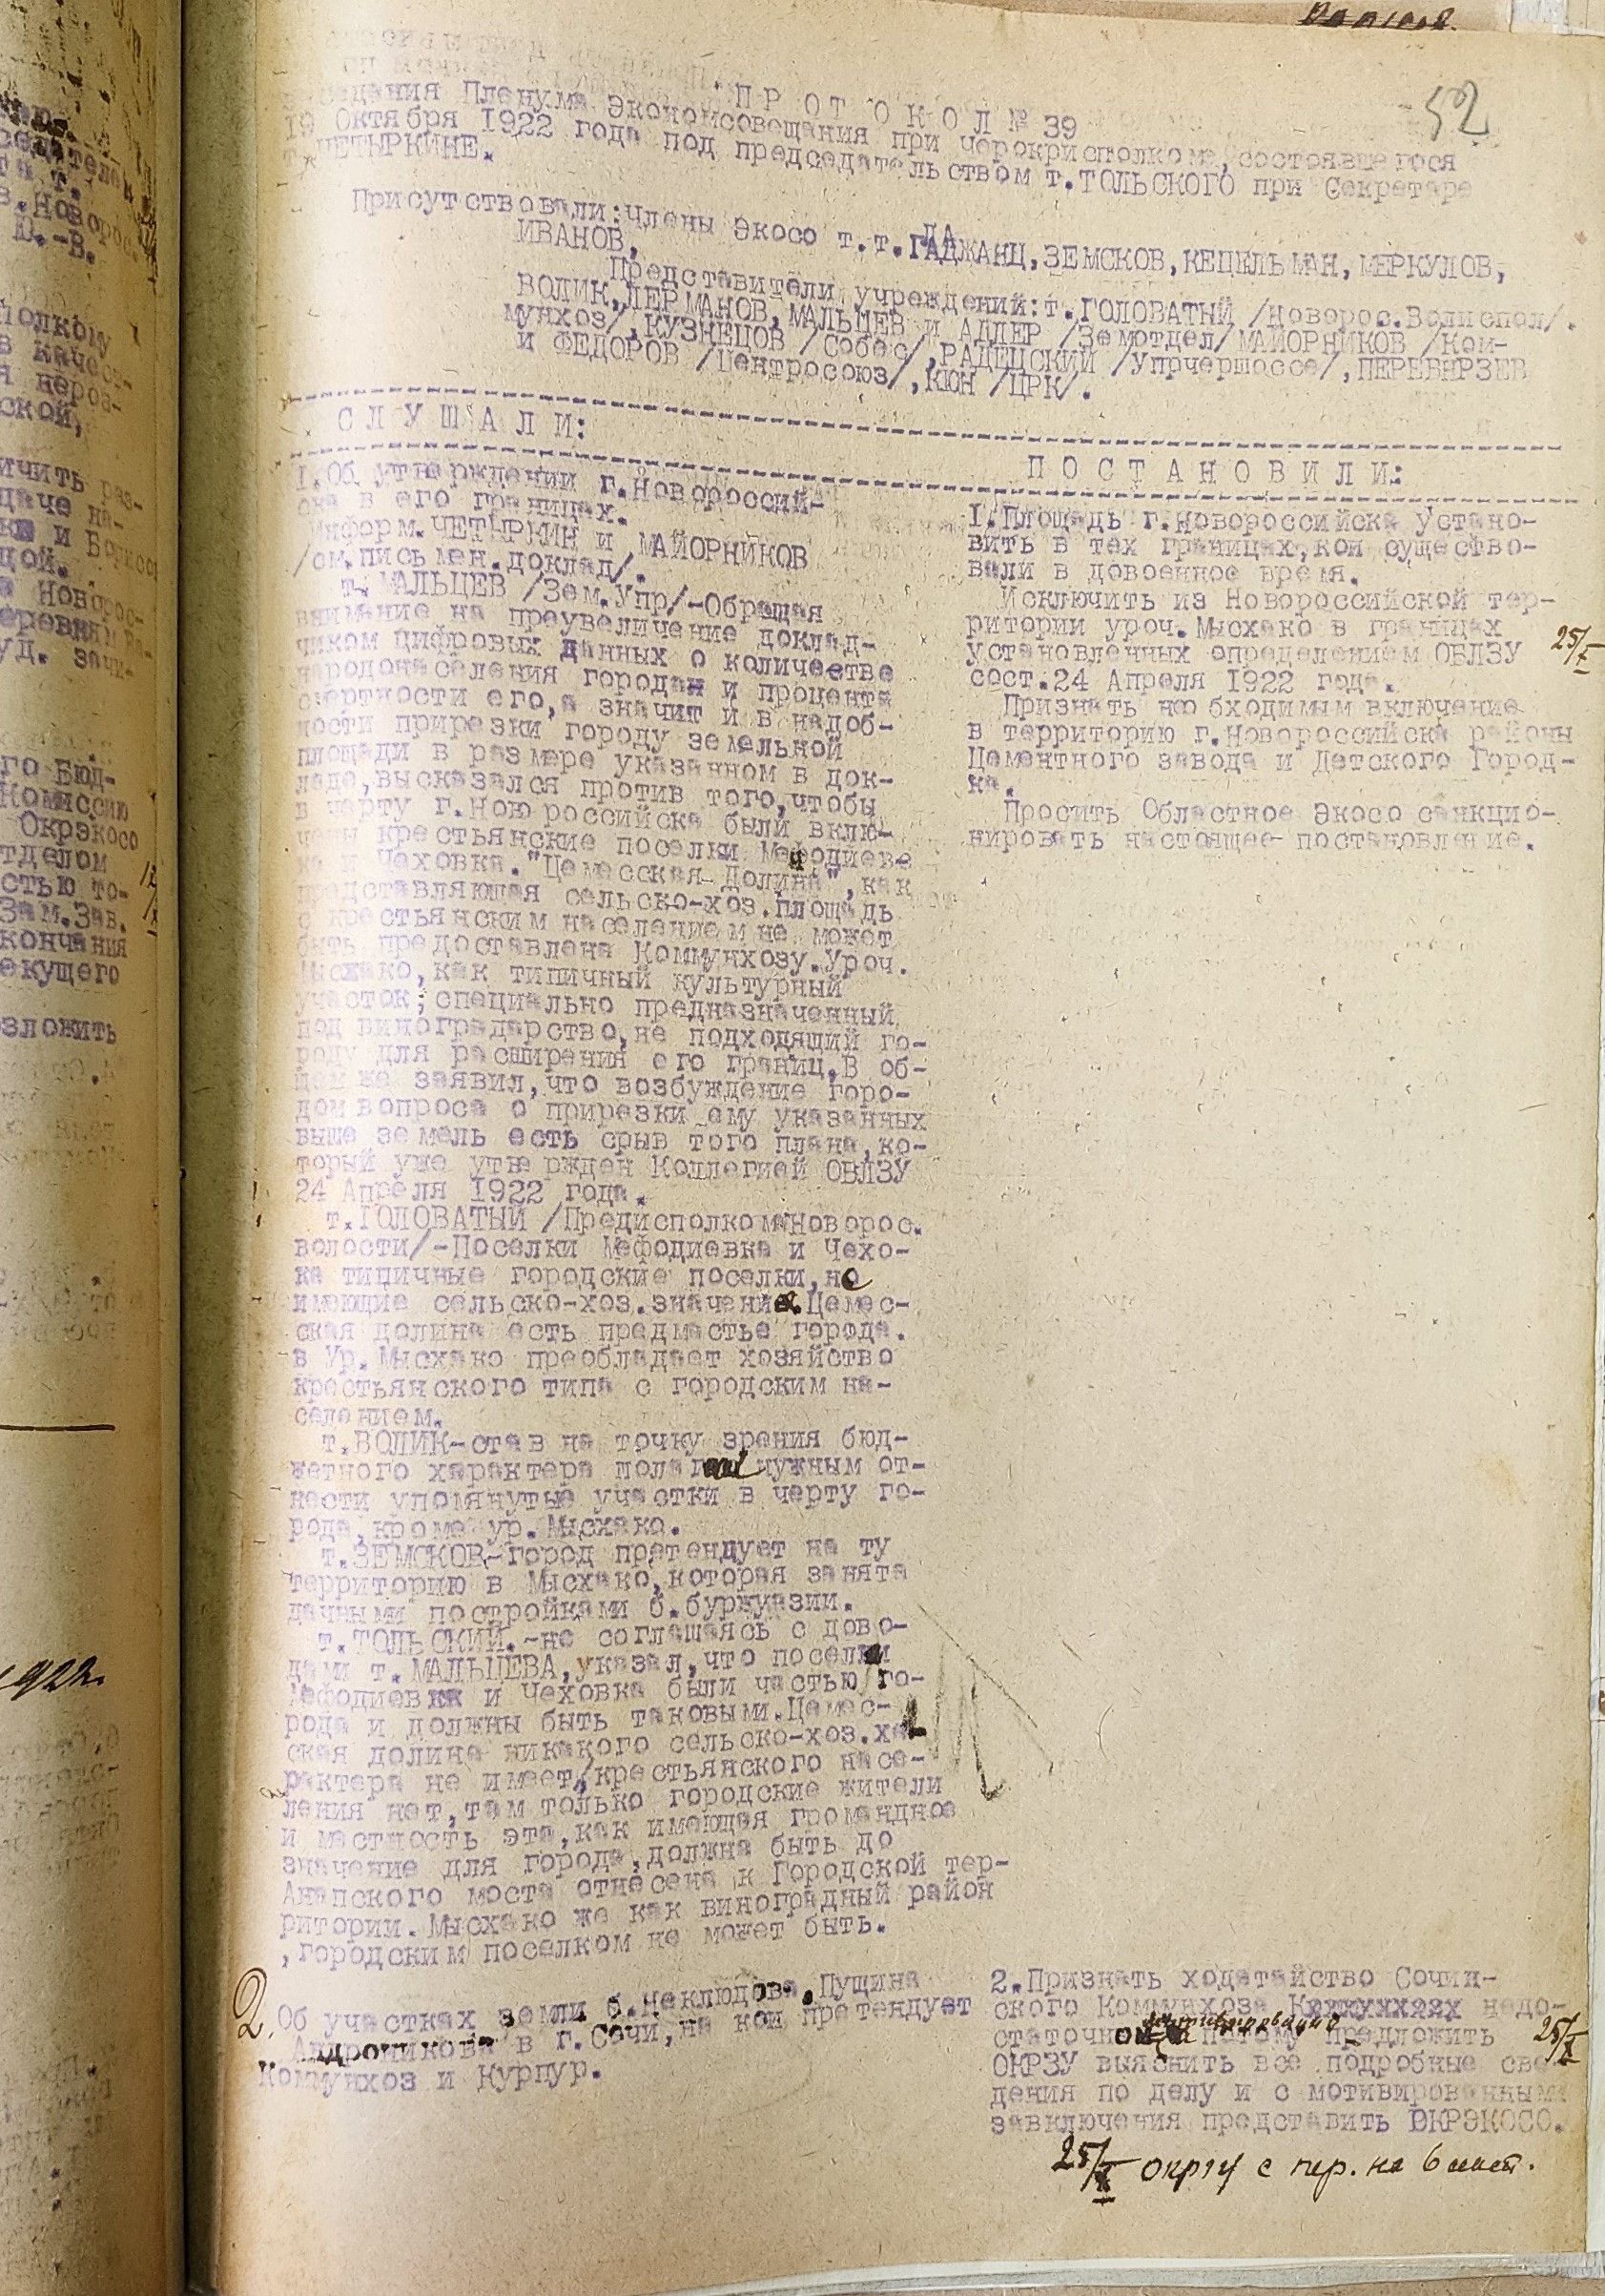 52
ПРОТОКОЛ № 39
седания Пленума Экономсовещания при Черокрисполкома, состоявшегося
19 Октября 1922 года под председательством т.ТОЛЬСКОГО при Секретаре
т.ЧЕТЫРКИНЕ.
Присутствовали: члены Экосо т.т.ГАДЖАНЦ, ЗЕМСКОВ, КЕЦЕЛЬМАН, МЕРКУЛОВ,
ИВАНОВ,
Представители учреждений: т.ГОЛОВАТЫЙ /Новорос.Волиспол/.
ВОЛИК, ЛЕРМАНОВ, МАЛЬЦЕВ и АДЛЕР /Земотдел/ МАЙОРНИКОВ /Ком-
мунхоз/, КУЗНЕЦОВ /Собес/, РАДЕЦСКИЙ /Упрчершоссе/, ПЕРЕВЕРЗЕВ
и ФЕДОРОВ /Центросоюз/, КЮН /ЦРК/.
СЛУШАЛИ:
1. Об утверждении г.Новороссий-
ска в его границах.
Информ.ЧЕТЫРКИН и МАЙОРНИКОВ
/см.письмен.доклад/.
т.МАЛЬЦЕВ /Зем.Упр/-Обращая
внимание на преувеличение доклад-
чиком цифровых данных о количестве
народонаселения городан и процента
смертности его, а значит и в надоб-
ности прирезки городу земельной
площади в размере указанном в док-
ладе, высказался против того, чтобы
в черту г.Новороссийска были вклю-
чены крестьянские поселки Мефодиев-
ка и Чеховка. "Цемесская Долина", как
представляющая сельско-хоз.площадь
с крестьянским населением не может
быть предоставлена Коммунхозу. Уроч.
Мысхако, как типичный культурный
участок; специально предназначенный
под виноградарство, не подходящий го-
роду для расширения его границ. В об-
щем же заявил, что возбуждение горо-
дом вопроса о прирезки ему указанных
выше земель есть срыв того плана, ко-
торый уже утвержден Коллегией ОБЛЗУ
24 Апреля 1922 года.
т.ГОЛОВАТЫЙ /Предисполкома Новорос.
волости/-Поселки Мефодиевка и Чехо-
ка типичные городские поселки, не
имеющие сельско-хоз.значения. Цемес-
ская долина есть предместье города.
в Ур.Мысхако преобладает хозяйство
крестьянского типа с городским на-
селением.
т.ВОЛИК-став на точку зрения бюд-
жетного характера полагал нужным от-
нести упомянутые участки в черту го-
рода, кроме ур.Мысхако.
т.ЗЕМСКОВ-город претендует на ту
территорию в Мысхако, которая занята
дачными постройками б.буржуазии.
т.ТОЛЬСКИЙ.-не соглашаясь с дово-
дами т.МАЛЬЦЕВА, указал, что поселки
Мефодиевка и Чеховка были частью го-
рода и должны быть таковыми. Цемес-
ская долина никакого сельско-хоз.ха-
рактера не имеет, крестьянского насе-
ления нет, там только городские жители
и местность эта, как имеющая громандное
значение для города, должна быть до
Анапского моста отнесена к Городской тер-
ритории. Мысхако же как виноградный район
, городским поселком не может быть.
2. Об участках земли б.Неклюдова, Пущина
Андроникова в г.Сочи, на кои претендует
Коммунхоз и Курпур.
ПОСТАНОВИЛИ:
1. Площадь г.Новороссийска устано-
вить в тех границах, кои существо-
вали в довоенное время.
Исключить из Новороссийской тер-
ритории уроч.Мысхако в границах
установленных определением ОБЛЗУ
сост.24 Апреля 1922 года.
25/X
Признать необходимым включение
в территорию г.Новороссийска районы
Цементного завода и Детского Город-
ка.
Просить Областное Экосо санкцио-
нировать настоящее постановление.
2. Признать ходатайство Сочин-
ского Коммунхоза недо-
статочно мотивировано потому предложить
25/X
ОКРЗУ выяснить все подробные све-
дения по делу и с мотивированным
заключения представить ОКРЭКОСО.
25/X ОКРЗУ с пер. на 6 лист.